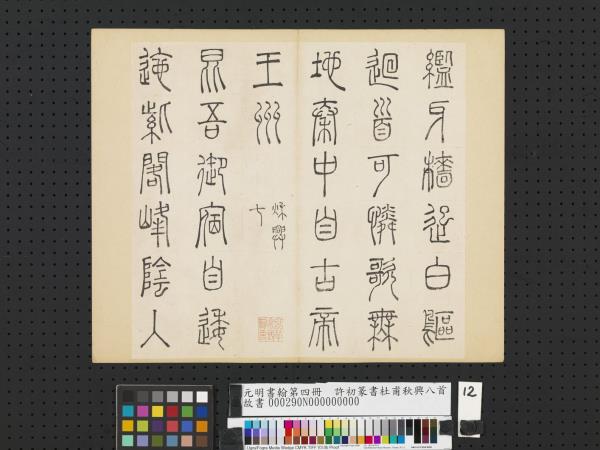 纜牙檣起白鷗
迴首可憐歌舞
地秦中自古帝
王州
秋興
七
昆吾御宿自逶
迤紫閣峰陰入
元明書翰第四冊 許初篆書杜甫秋興八首
故書 000290N000000000
12